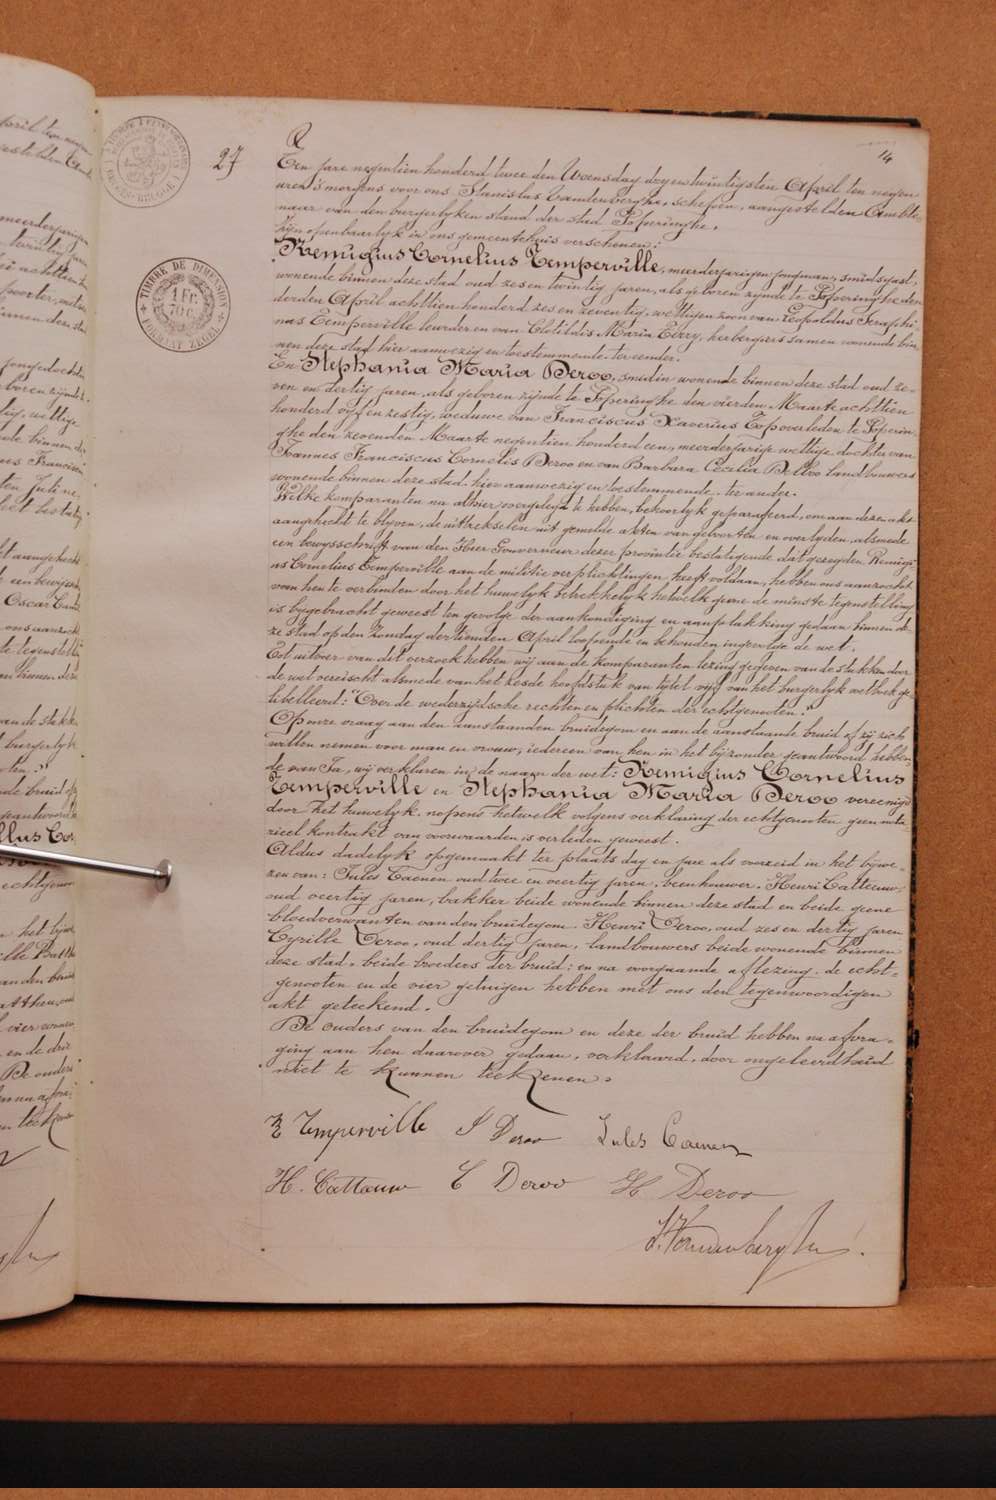 27
14
TIMBRE DE DIMENSION
1 FR.
70 C.
FORMAAT ZEGEL
Ten jare negentien honderd twee den Woensdag dryentwintigsten April ten negen
uren 's morgens voor ons Stanislas Vandenberghe, schepen, aangestelden Ambte-
naar van den burgerlyken stand der stad Poperinghe.
Zijn openbaarlyk in ons gemeentehuis verschenen:
Remigius Cornelius Temperville, meerderjarigen jongman, smidsgast,
wonende binnen deze stad oud zes en twintig jaren, als geboren zynde te Poperinghe den
derden April achttien honderd zes en zeventig, wettigen zoon van Leopoldus Seraphi-
nus Temperville leurder en van Clotildis Maria Terry, herbergiers samen wonende bin-
nen deze stad hier aanwezig en toestemmende. ter eender.
En Stephania Maria Deroo, smedin wonende binnen deze stad oud ze-
ven en dertig jaren, als geboren zynde te Poperinghe den vierden Maarte achttien
honderd vyf en zestig, weduwe van Franciscus Xaverius Top overleden te Poperin-
ghe den zevenden Maarte negentien honderd een, meerderjarige wettige dochter van
Joannes Franciscus Cornelis Deroo en van Barbara Cecilia Delbo landbouwers
wonende binnen deze stad. hier aanwezig en toestemmende. ter ander.
Welke komparanten na alhier overgelegd te hebben, behoorlyk geparafeerd, om aan dezen akt
aangehecht te blyven, de uittrekselen uit gemelde akten van geboorten en overlyden, alsmede
een bewysschrift van den Heer Gouverneur dezer provintie bestatigende dat gezegden Remigi-
us Cornelius Temperville aan de militie verplichtingen heeft voldaan, hebben ons aanzocht
van hen te verbinden door het huwelyk betrekkelyk hetwelk geene de minste tegenstelling
is bygebracht geweest ten gevolge der aankondiging en aanplakking gedaan binnen de-
ze stad op den Zondag dertienden April loopende en behouden ingevolge de wet.
Tot uitvoer van dit verzoek hebben wij aan de komparanten lezing gegeven van de stukken door
de wet vereischt alsmede van het zesde hoofdstuk van tytel vyf van het burgerlyk wetboek ge-
libelleerd: "Over de wederzijdsche rechten en plichten der echtgenoten."
Op onze vraag aan den aanstaanden bruidegom en aan de aanstaande bruid of zij zich
willen nemen voor man en vrouw, iedereen van hen in het bijzonder geantwoord hebben-
de van Ja, wij verklaren in de naam der wet: Remigius Cornelius
Temperville en Stephania Maria Deroo vereenigd
door het huwelyk. nopens hetwelk volgens verklaring der echtgenoten geen nota-
rieel kontrakt van voorwaarden is verleden geweest.
Aldus dadelyk opgemaakt ter plaats dag en jare als voorzeid in het bijwe-
zen van: Jules Caenen oud twee en veertig jaren, beenhouwer. Henri Cattouw,
oud veertig jaren, bakker beide wonende binnen deze stad en beide geene
bloedverwanten van den bruidegom. Henri Deroo, oud zes en dertig jaren
Cyrille Deroo, oud dertig jaren, landbouwers beide wonende binnen
deze stad. beide broeders der bruid: en na voorgaande aflezing. de echt-
genooten en de vier getuigen hebben met ons den tegenwoordigen
akt geteekend.
De ouders van den bruidegom en deze der bruid hebben na afvra-
ging aan hen daarover gedaan, verklaard, door ongeleerdheid
niet te kunnen teekenen.
R Temperville S Deroo Jules Caenen
H. Cattouw C Deroo H Deroo
S. Vandenberghe